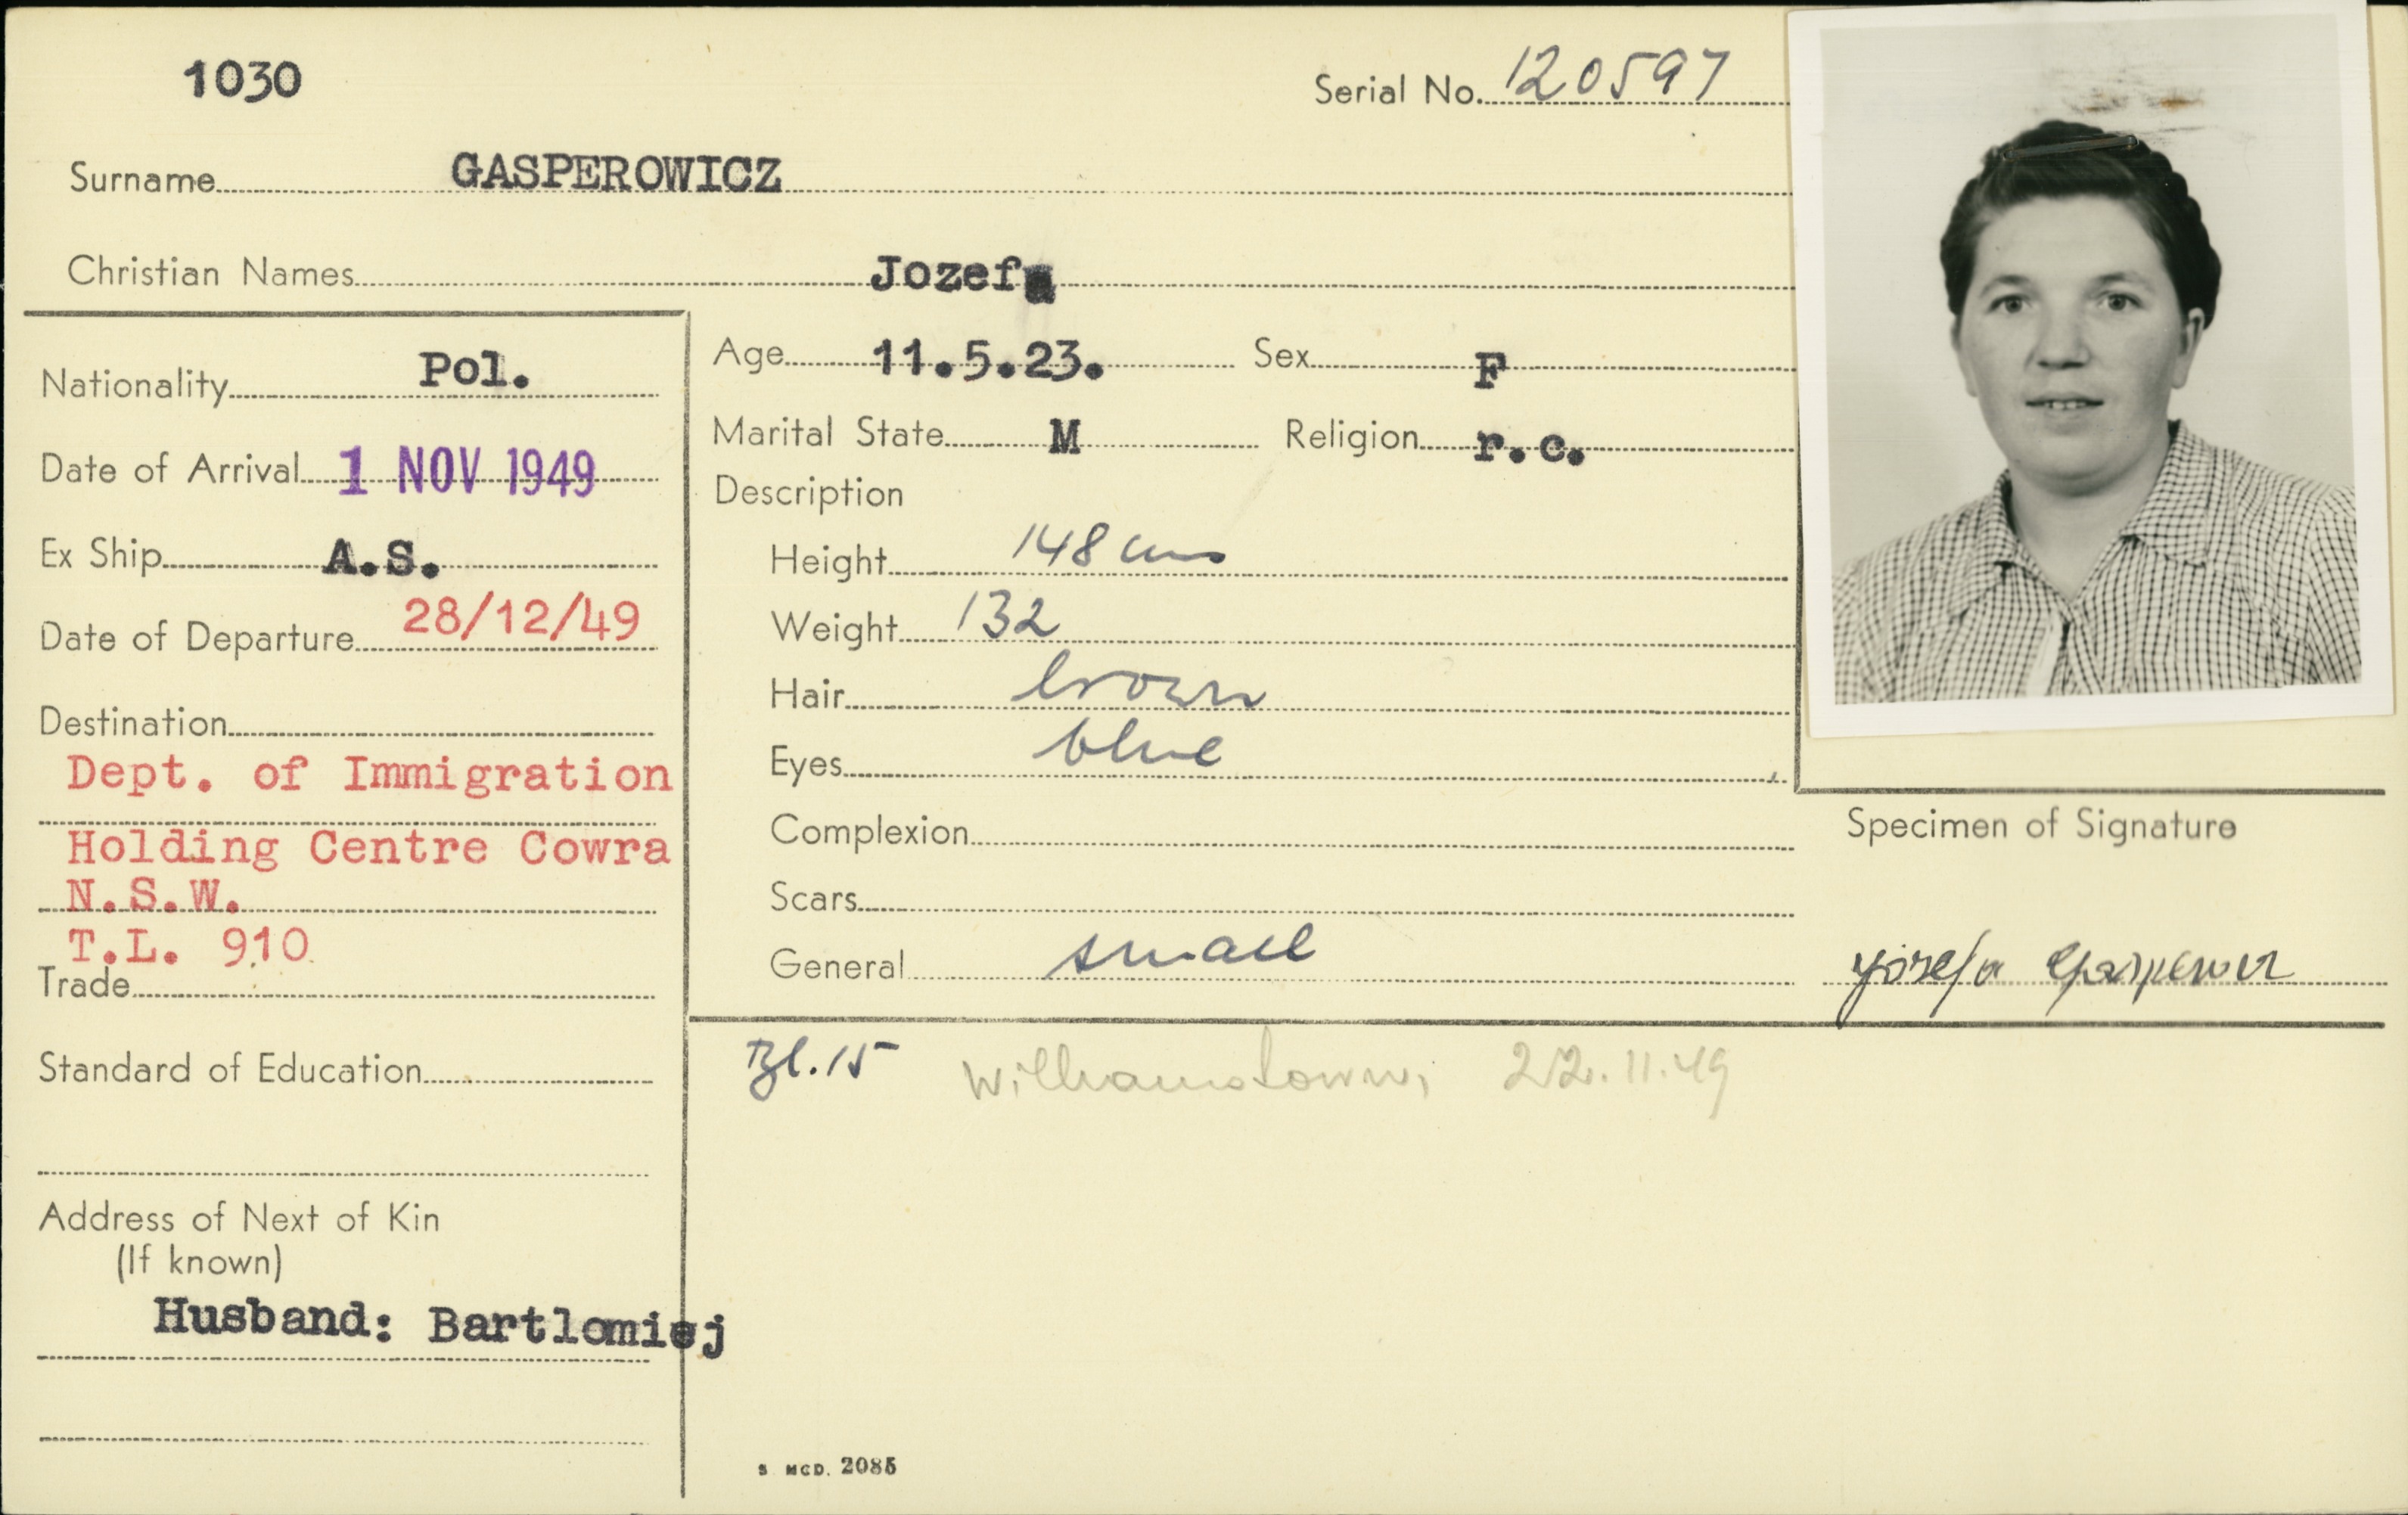 1030
Serial No. 120597
Surname GASPEROWICZ
Christian Names Jozefa
Nationality Pol.
Date of Arrival 1 NOV 1949
Ex Ship A.S.
Date of Departure 28/12/49
Destination
Dept. of Immigration
Holding Centre Cowra
N.S.W.
T.L. 910
Trade
Standard of Education
Address of Next of Kin
(If known)
Husband: Bartlomiej
Age 11.5.23. Sex F
Marital State M Religion r.c.
Description
Height 148 cms
Weight 132
Hair brown
Eyes blue
Complexion
Scars
General small
Specimen of Signature
Józefa
Bl.15 Williamstown, 22.11.49
S MCD. 2085